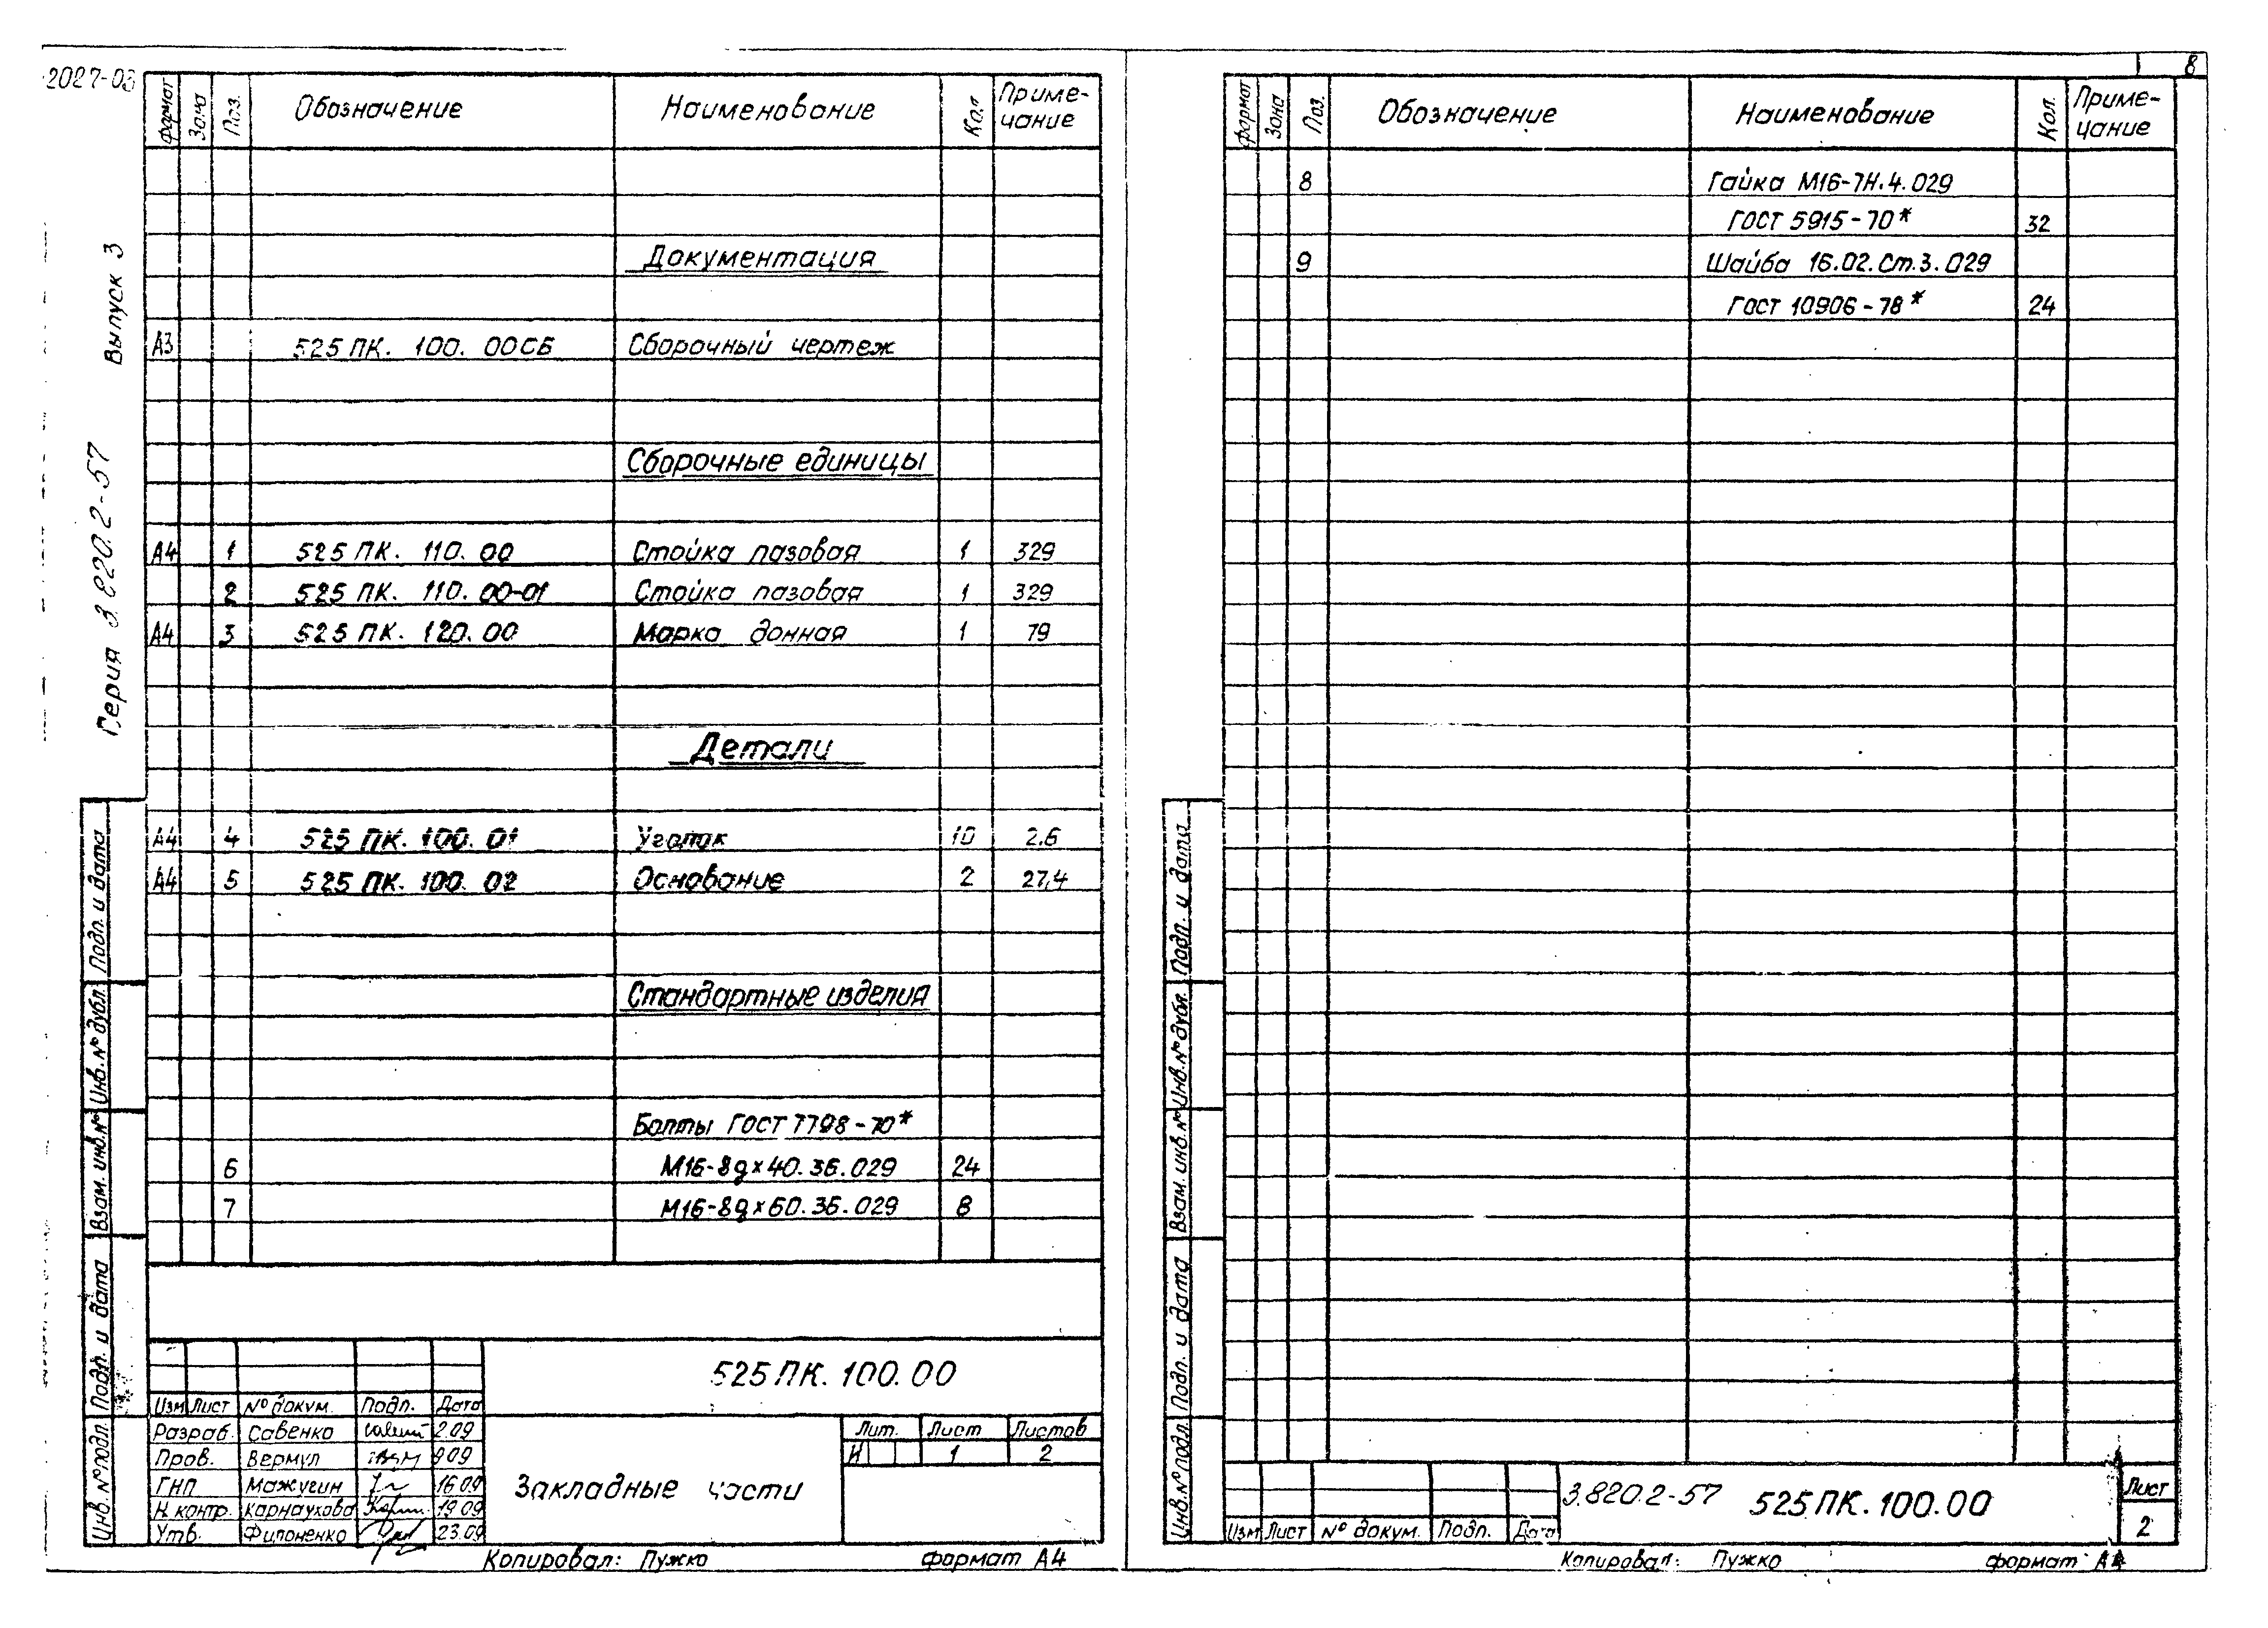 2027-03
Серия 3.820.2-57 Выпуск 3
Формат Зона Поз. Обозначение Наименование Кол. Приме-
чание
Документация
А3 525 ПК. 100. 00СБ Сборочный чертеж
Сборочные единицы
А4 1 525 ПК. 110. 00 Стойка пазовая 1 329
2 525 ПК. 110. 00-01 Стойка пазовая 1 329
А4 3 525 ПК. 120. 00 Марка донная 1 79
Детали
А4 4 525 ПК. 100. 01 Уголок 10 2.6
А4 5 525 ПК. 100. 02 Основание 2 27,4
Стандартные изделия
Болты ГОСТ 7798-70*
6 М16-8g×40.36.029 24
7 М16-8g×60.36.029 8
Подп. и дата
Инв. № дубл.
Взам. инв. №
Подп. и дата
Инв. № подл.
525 ПК. 100. 00
Изм Лист № докум. Подп. Дата
Разраб. Савенко 2.09
Пров. Вермул 9.09
ГИП Мажугин 16.09
Н. контр. Карнаухова 19.09
Утв. Филоненко 23.09
Закладные части
Лит. Лист Листов
И 1 2
Копировал: Пужко формат А4
8
Формат Зона Поз. Обозначение Наименование Кол. Приме-
чание
8 Гайка М16-7Н.4.029
ГОСТ 5915-70* 32
9 Шайба 16.02.Ст.3.029
ГОСТ 10906-78* 24
Подп. и дата
Инв. № дубл.
Взам. инв. №
Подп. и дата
Инв. № подл.
Изм Лист № докум. Подп. Дата
3.820.2-57 525 ПК. 100. 00
Лист
2
Копировал: Пужко формат А4